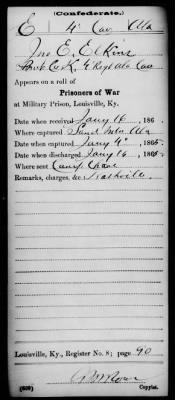 (Confederate.)
E 4 Cav Ala
Jno E. Elkins
Pvt Co K, 4 Regt Ala Cav
Appears on a roll of
Prisoners of War
at Military Prison, Louisville, Ky.
Date when received Jany 16, 186
Where captured Ala
Date when captured Jany 4", 1865
Date when discharged Jany 16, 1865
Where sent Camp Chase
Remarks, charges, &c.: Nashville
Louisville, Ky., Register No. 8; page 90
(639) Copyist.